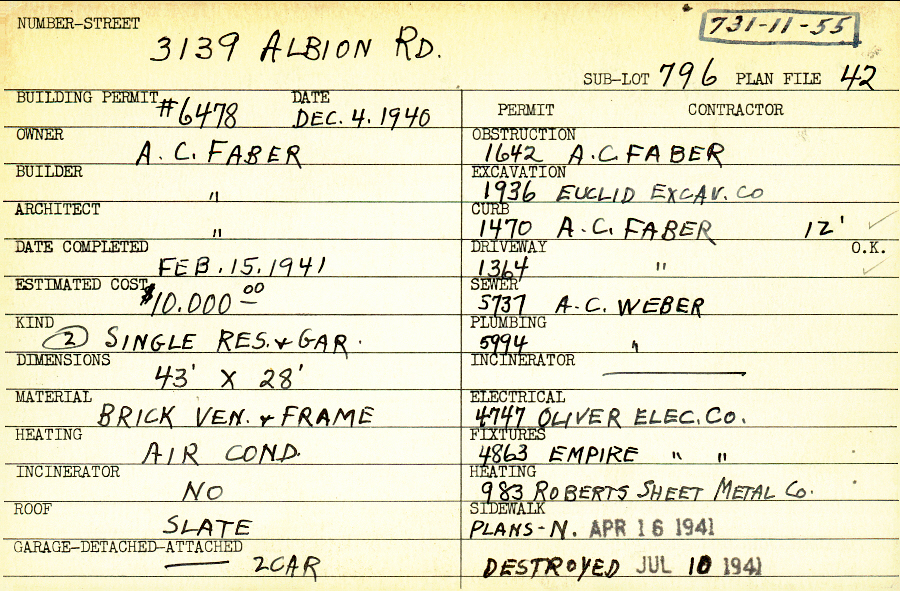 NUMBER-STREET
3139 ALBION RD.
731-11-55
SUB-LOT 796 PLAN FILE 42
BUILDING PERMIT #6478 DATE DEC. 4. 1940
OWNER
A. C. FABER
BUILDER
"
ARCHITECT
"
DATE COMPLETED
FEB. 15. 1941
ESTIMATED COST
$10.000 00
KIND
2 SINGLE RES. & GAR.
DIMENSIONS
43' X 28'
MATERIAL
BRICK VEN. & FRAME
HEATING
AIR COND.
INCINERATOR
NO
ROOF
SLATE
GARAGE-DETACHED-ATTACHED
2 CAR
PERMIT CONTRACTOR
OBSTRUCTION
1642 A.C. FABER
EXCAVATION
1936 EUCLID EXCAV. CO
CURB
1470 A.C. FABER 12'
DRIVEWAY O.K.
1364 "
SEWER
5737 A.C. WEBER
PLUMBING
5994 "
INCINERATOR
ELECTRICAL
4747 OLIVER ELEC. CO.
FIXTURES
4863 EMPIRE " "
HEATING
983 ROBERTS SHEET METAL CO.
SIDEWALK
PLANS-N. APR 16 1941
DESTROYED JUL 10 1941